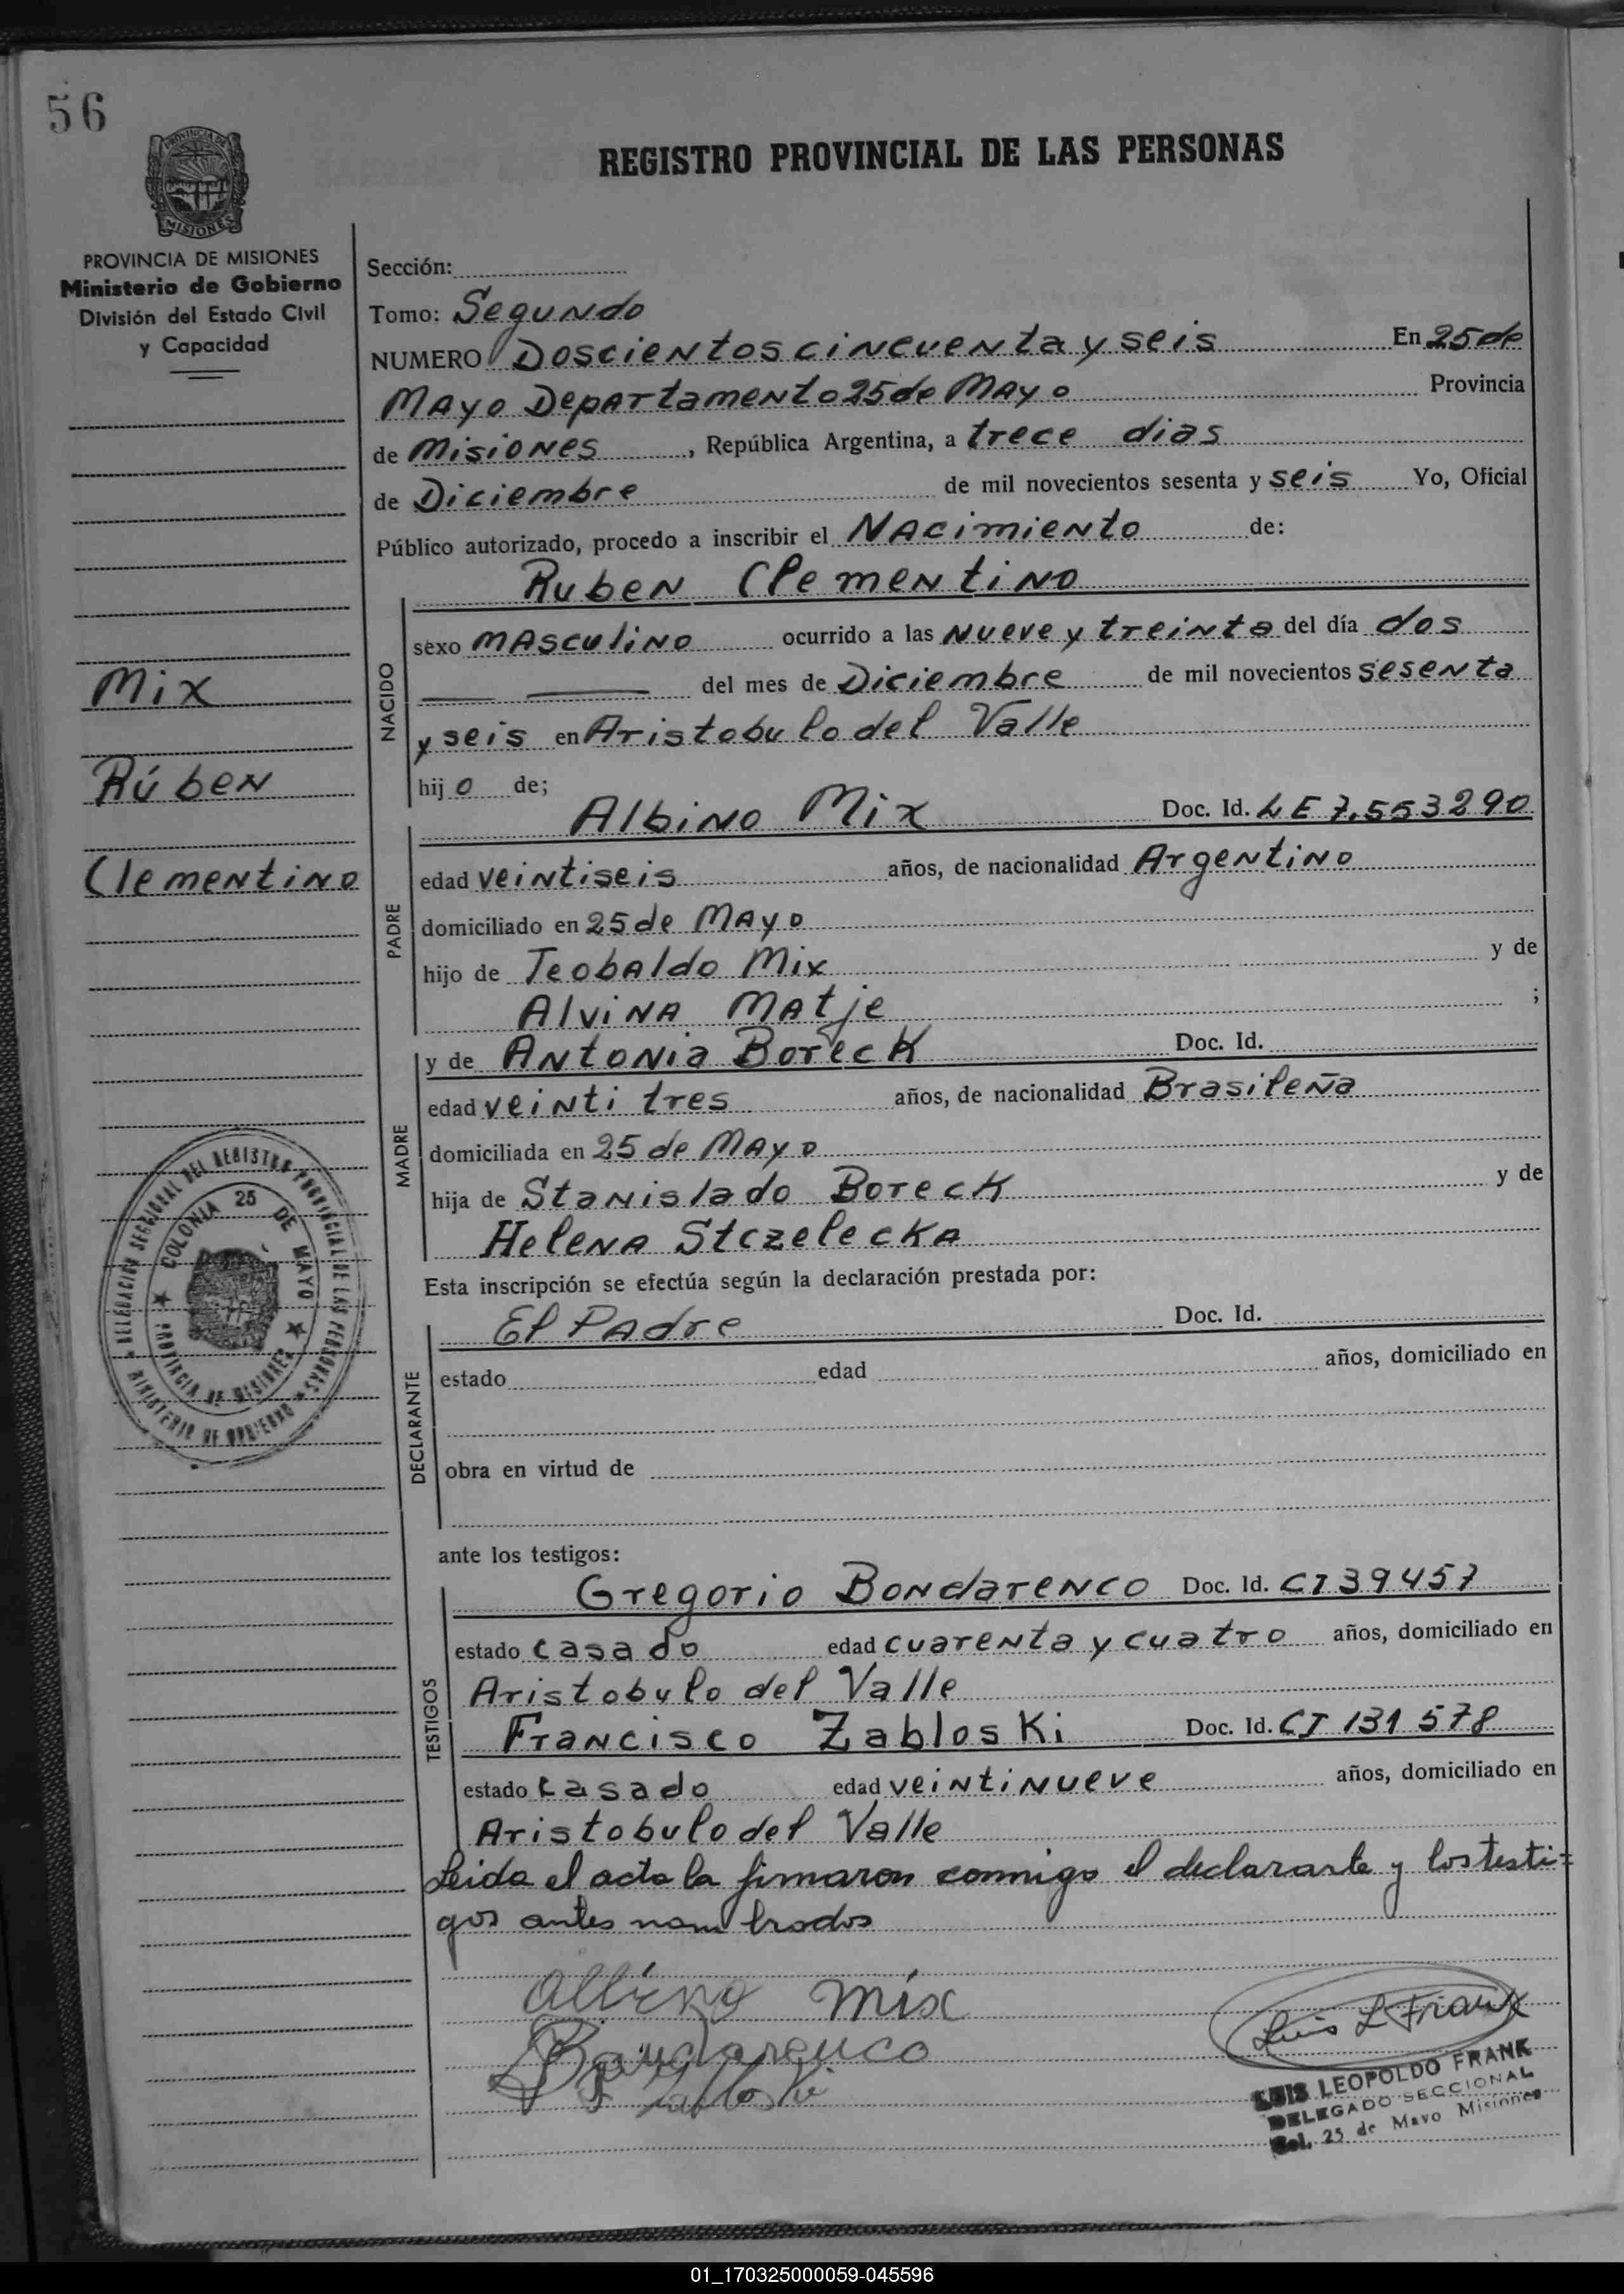 56
PROVINCIA DE MISIONES
REGISTRO PROVINCIAL DE LAS PERSONAS
PROVINCIA DE MISIONES
Ministerio de Gobierno
División del Estado Civil
y Capacidad
Mix
Rúben
Clementino
Sección:
Tomo: Segundo
NUMERO Doscientos cincuenta y seis En 25 de
Mayo Departamento 25 de Mayo Provincia
de Misiones, República Argentina, a trece dias
de Diciembre de mil novecientos sesenta y seis Yo, Oficial
Público autorizado, procedo a inscribir el Nacimiento de:
NACIDO
Ruben Clementino
sexo masculino ocurrido a las nueve y treinta del día dos
del mes de Diciembre de mil novecientos sesenta
y seis en Aristobulo del Valle
hijo de;
PADRE
Albino Mix Doc. Id. LE 7.553290
edad veintiseis años, de nacionalidad Argentino
domiciliado en 25 de Mayo
hijo de Teobaldo Mix y de
Alvina Matje ;
MADRE
y de Antonia Boreck Doc. Id.
edad veinti tres años, de nacionalidad Brasileña
domiciliada en 25 de Mayo
hija de Stanislado Boreck y de
Helena Stczelecka
Esta inscripción se efectúa según la declaración prestada por:
DECLARANTE
El Padre Doc. Id.
estado edad años, domiciliado en
obra en virtud de
ante los testigos:
TESTIGOS
Gregorio Bondarenco Doc. Id. CI 39457
estado casado edad cuarenta y cuatro años, domiciliado en
Aristobulo del Valle
Francisco Zabloski Doc. Id. CI 131 578
estado casado edad veintinueve años, domiciliado en
Aristobulo del Valle
Leida el acta la firmaron conmigo el declarante y los testi=
gos antes nombrados
Albino Mix
Bondarenco
Luis L Frank
LUIS LEOPOLDO FRANK
DELEGADO SECCIONAL
Col. 25 de Mayo Misiones
DELEGACION SECCIONAL DEL REGISTRO PROVINCIAL DE LAS PERSONAS
MINISTERIO DE GOBIERNO
COLONIA 25 DE MAYO
PROVINCIA DE MISIONES
01_170325000059-045596